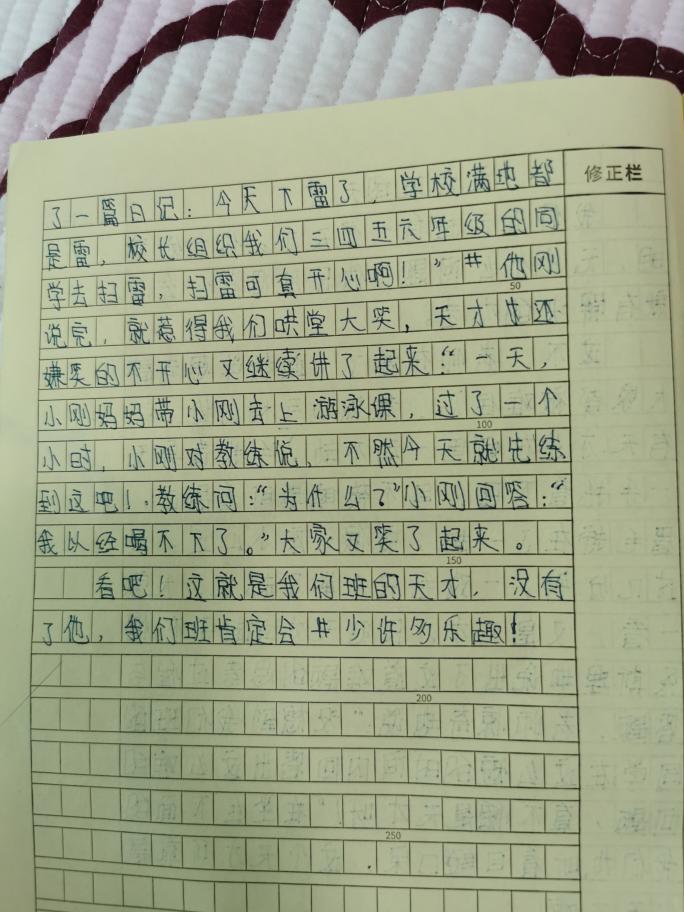 修正栏
了一篇日记：今天下雷了，学校满地都
是雷，校长组织我们三四五六年级的同
学去扫雷，扫雷可真开心啊！”# 他刚
50
说完，就惹得我们哄堂大笑，天才也还
嫌笑的不开心又继续讲了起来“一天，
小刚妈妈带小刚去上游泳课，过了一个
100
小时，小刚对教练说，不然今天就先练
到这吧！教练问：“为什么？”小刚回答：“
我以经喝不下了。”大家又笑了起来。
150
看吧！这就是我们班的天才，没有
了他，我们班肯定会#少许多乐趣！
200
250